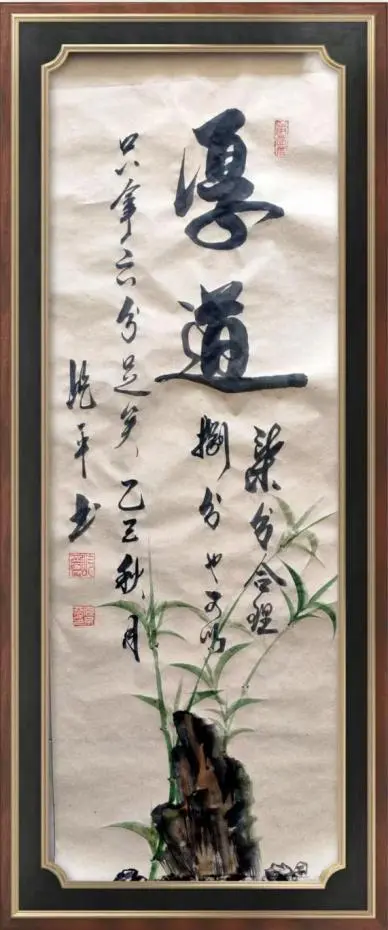 厚道
柒分合理
捌分也可以
只拿六分足矣 乙巳秋月
平书